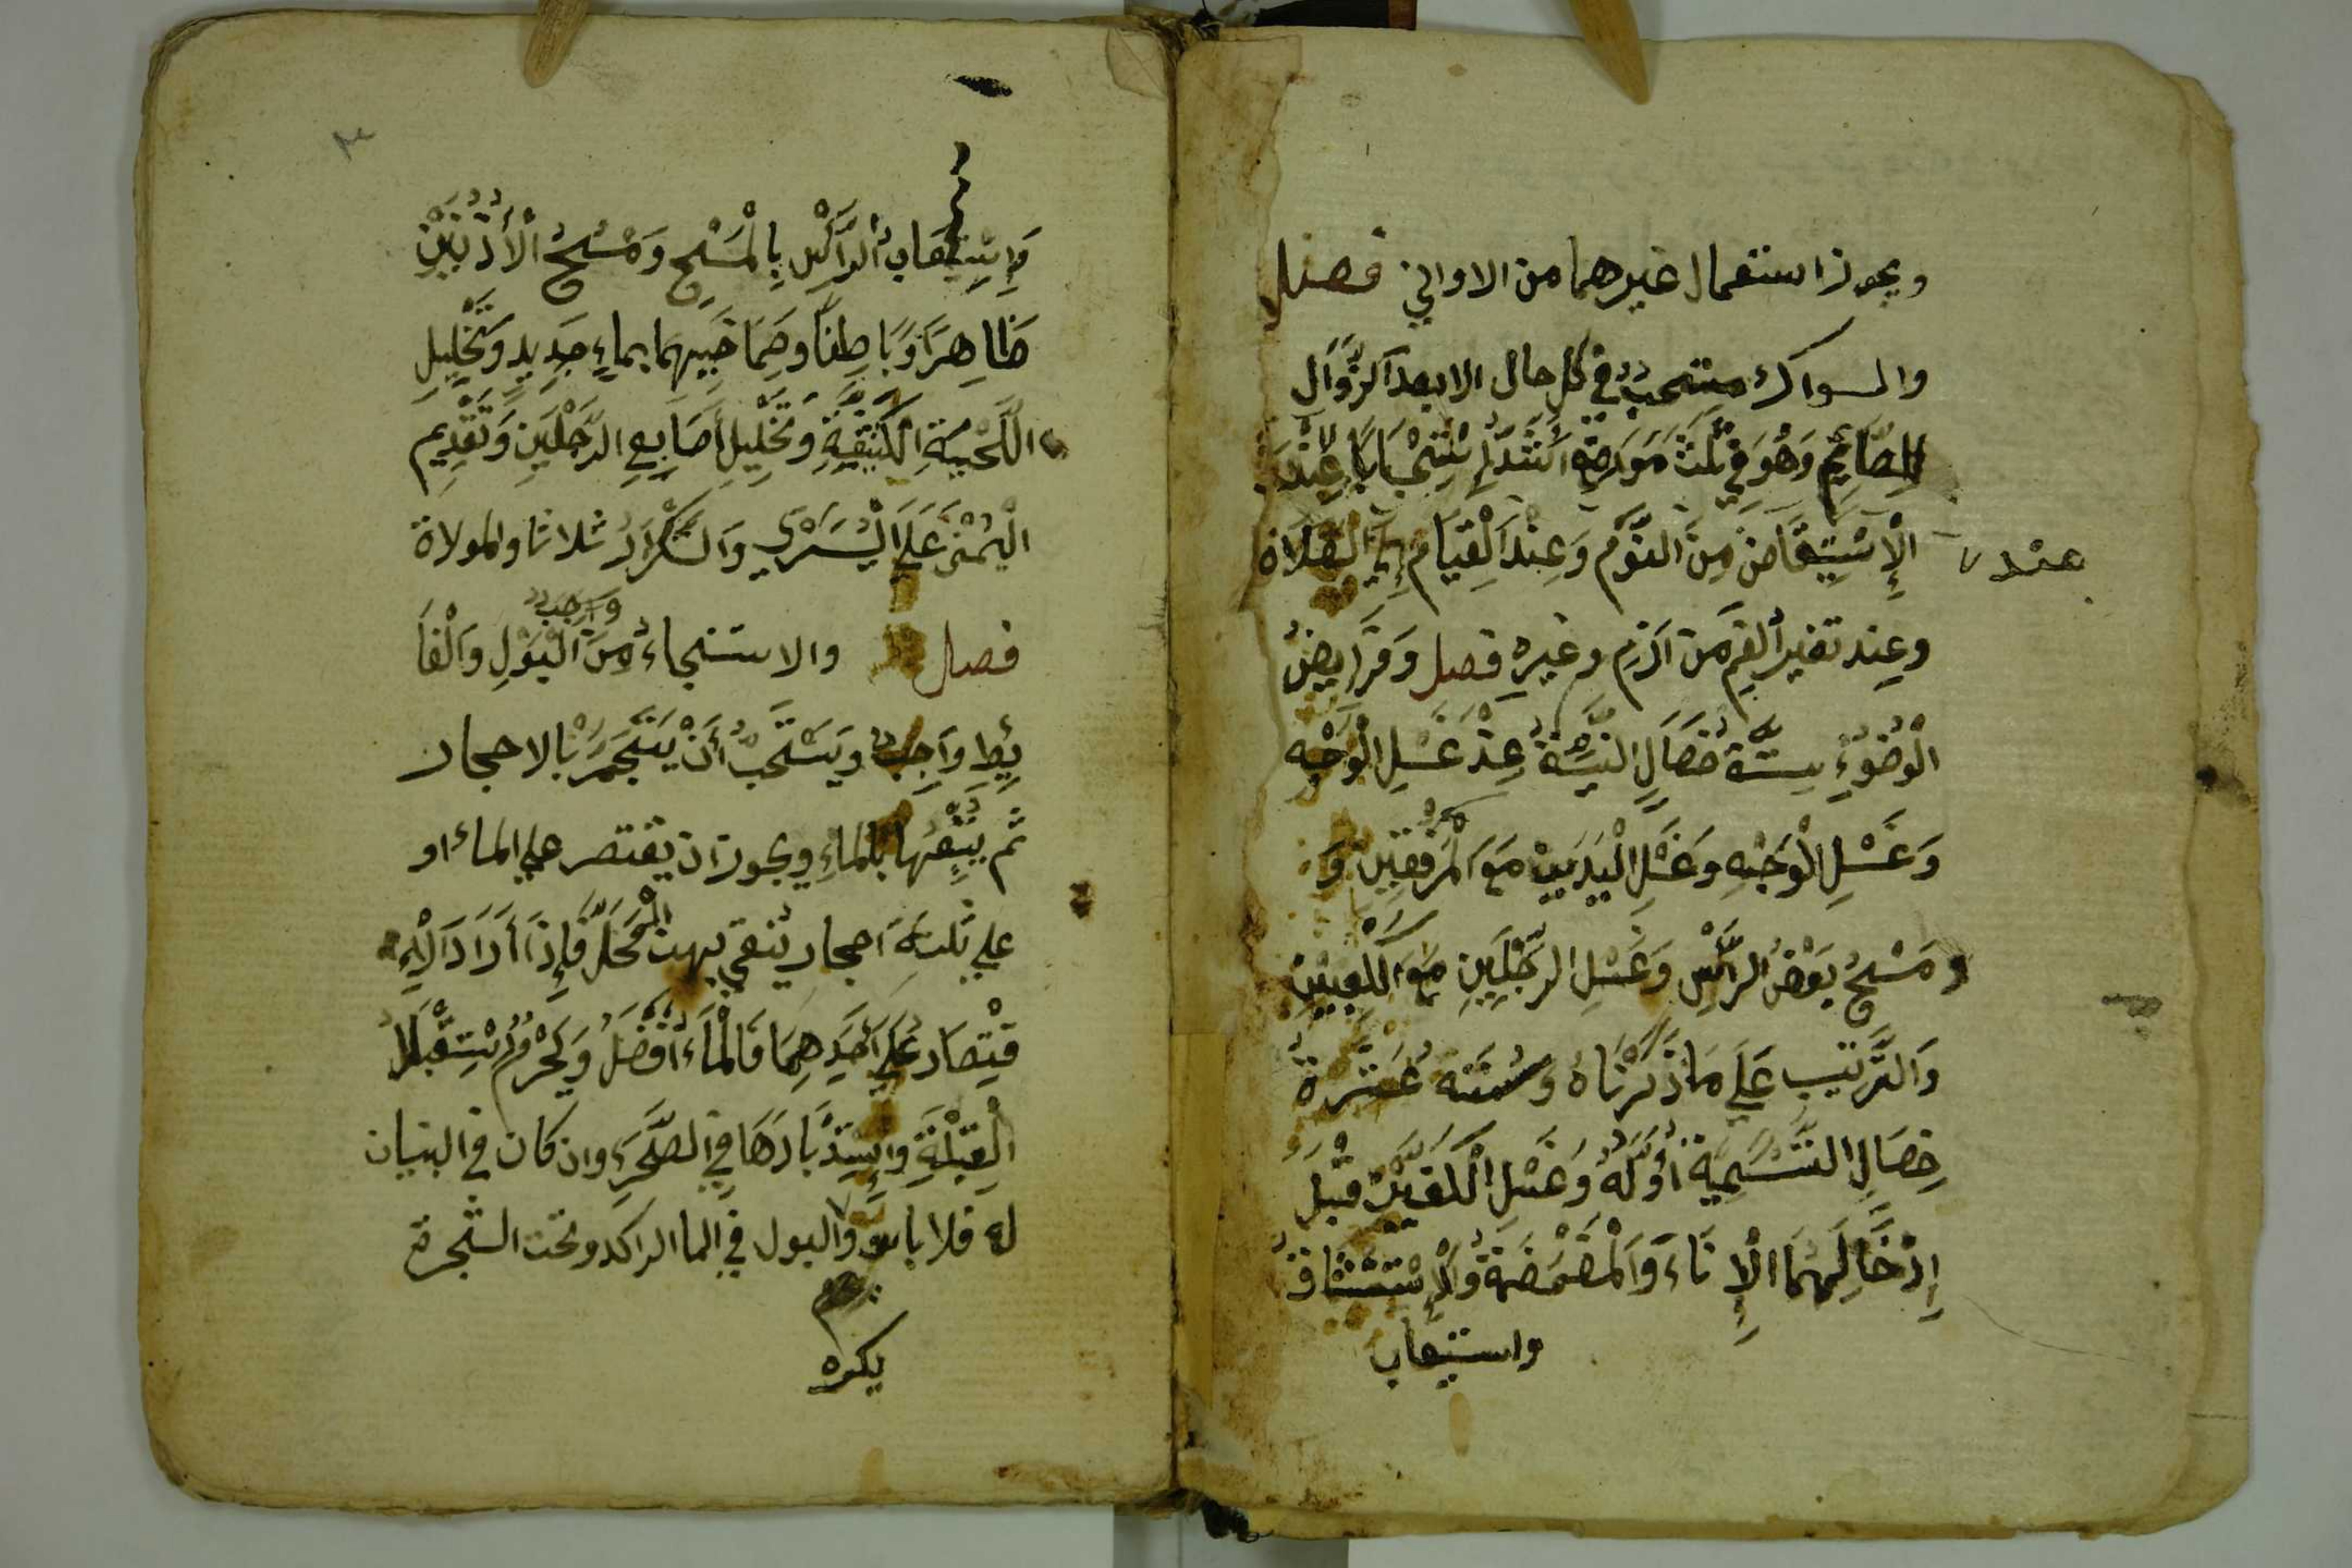 ويجوز استعمال غيرهما من الاواني فصل
والسواك مستحب في كل حال الا بعد الزوال
للصَّائِمِ وَهُوَ فِي ثلث مَوَاضِع اشد اسْتِحْبَابًا عِنْدَ
الْإِسْتِيقَاض مِنَ النَّوْم وَعِنْدَ الْقِيَام إِلَي الصَّلَاة
عند
وعِند تغير الفم من ازم وغيره فصل وَفَرَايِضُ
الْوُضُوءِ سِتَّة خصَال النِّيَّة عِنْدَ غَسْلِ الْوَجْه
وَغَسْلِ الْوَجْهِ وغَسْلِ الْيَدَيْنِ مَعَ الْمِرْفَقَيْنِ وَ
ومَسْحُ بَعْضُ الرَّأْسِ وَغَسْلِ الرِّجْلَيْنِ مَعَ الكعبين
وَالتَّرْتِيبِ عَلَي مَا ذَكَرْنَاهُ وسُنَنه عَشَرَةُ
خِصَالِ التَّسْمِيَة أَوَّلَهُ وَغَسْلِ الْكَفَّيْنِ قَبْلَ
إِدْخَالِهِمَا الْإِنَاءَ وَالْمَضْمَضَةُ وَالْإِسْتِنْشَاقُ
واستيعاب
وَاسْتِيعَابُ الرَّأْسِ بِالْمَسْحِ وَمَسْحُ الْأُذُنَيْنِ
ظَاهِرًا وَبَاطِنًا وصِمَاخَيهما بماءٍ جَدِيدٍ وتَخْلِيلِ
اللِّحْيَةِ الكثيفةِ وتَخْلِيلِ أَصَابِعِ الرِّجْلَيْنِ وَتَقْدِيم
الْيُمْنَى عَلَى الْيُسْرَي وَالتَّكْرَارُ ثلاثا والمولاة
فصل والاستنجاء وَاجِبٌ مِنَ الْبَوْلِ وَالْغَا
يِطِ وَاجِبٌ ويَسْتَحَبُّ أَنْ يَسْتَجْمِرَ بالاحجار
ثُمَّ يُتْبِعُهَا بالماءِ ويجوز ان يقتصر علي الماء او
علي ثلثة احجار ينقي بهن الْمَحَلَّ فَإِذَا أَرَادَ الْإِ
قْتِصَار عَلَي أَحَدِهِمَا فَالْمَاءُ أَفْضَلُ وَيَحْرُمُ اسْتِقْبَال
الْقِبْلَةِ وَاسْتِدْبَارَهَا فِي الصَّحْرَءِ وان كان في البنيان
له فلا باس والبول في الما الراكد وتحت الشجرة
يكره